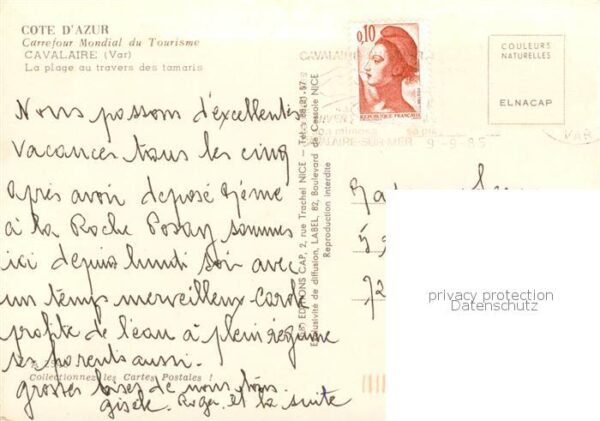 COTE D'AZUR
Carrefour Mondial du Tourisme
CAVALAIRE (Var)
La plage au travers des tamaris
0,10
REPUBLIQUE FRANÇAISE
COULEURS
NATURELLES
ELNACAP
CAVALAIRE
HIVER
mimosa
CAVALAIRE-SUR-MER 9-9-85
VAR
Nous passons d'excellentes
vacances tous les cinq
après avoir déposé
à la Roche Posay sommes
ici depuis lundi soir avec
un temps merveilleux. Carole
profite de l'eau à plein régime
ses parents aussi.
grosses bises de nous tous.
Gisèle. Roger et la suite
Collectionnez les Cartes Postales !
EDITIONS CAP, 2, rue Trachel NICE - Tél. 88.21.57
Exclusivité de diffusion, LABEL, 82, Boulevard de Cessole NICE
Reproduction interdite
72
privacy protection
Datenschutz